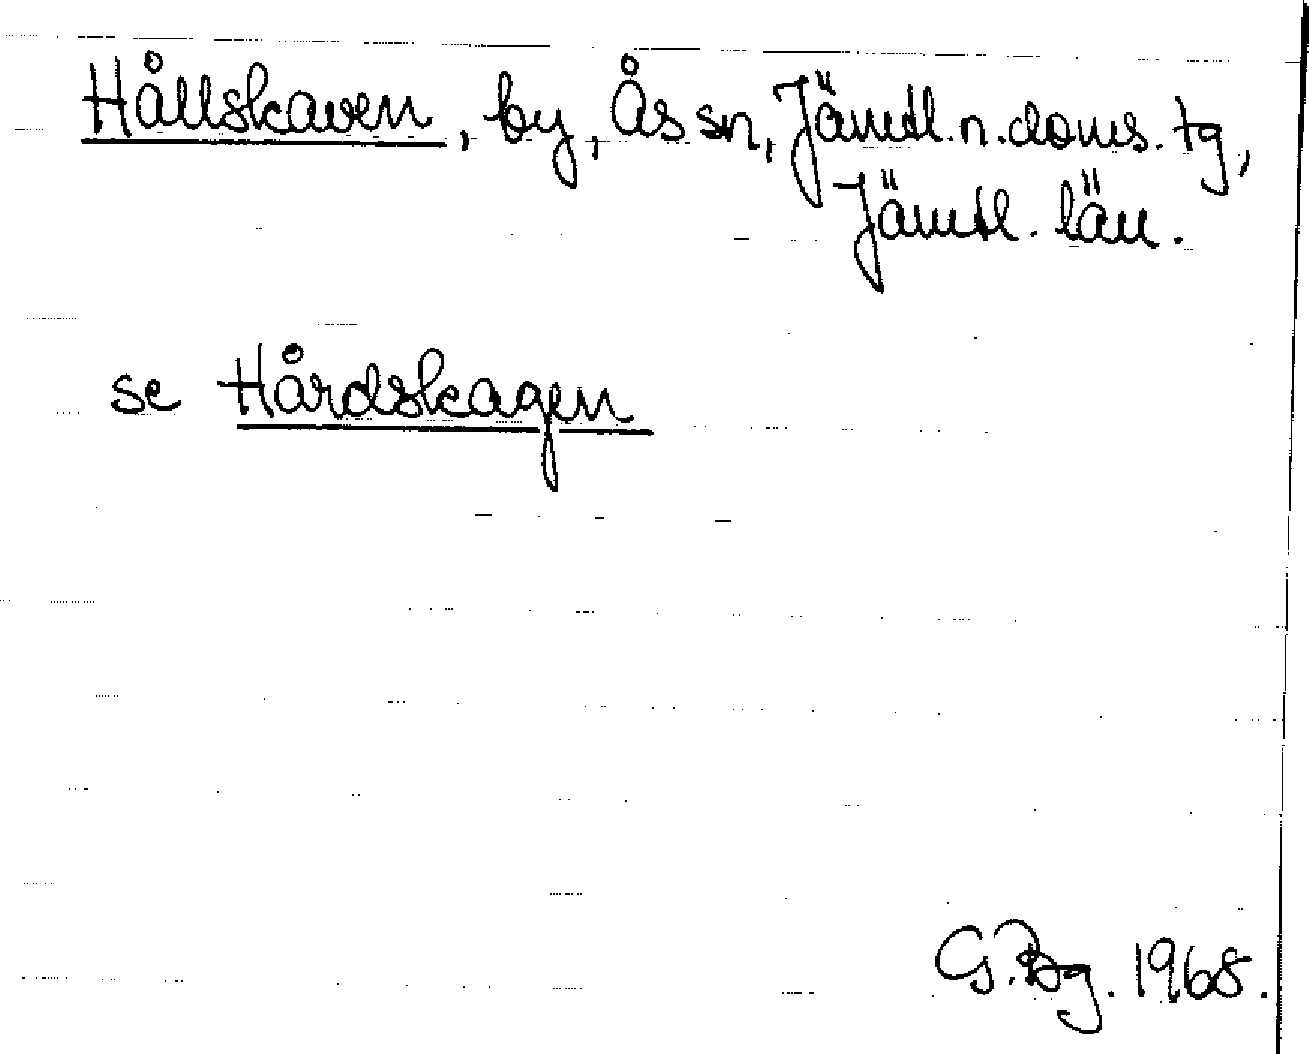 Hållskaven, by, Ås sn, Jämtl. n. doms. tg,
Jämtl. län.
se Hårdskagen
G. Bg. 1968.